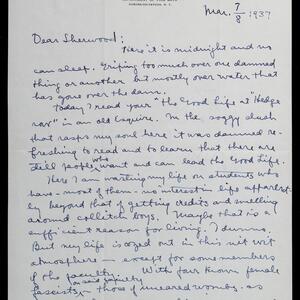 Mar. 7/8 1937
Dear Sherwood:
Here it is midnight and no
can sleep. Griping too much over one damned
thing or another but mostly over water that
has gone over the dam.
Today I read your "The Good Life at "Hedge
row" in an old Esquire. In the soggy slush
that rasps my soul here it was damned re-
freshing to read and to learn that there are
still people who want and can lead the Good Life.
Here I am wasting my life on students who
have - most of them - no interest in life apparent-
ly beyond that of getting credits and smelling
around collitch boys. Maybe that is a
sufficient reason for living. I dunno.
But my life is oozed out in this nit wit
atmosphere - except for some members
of the faculty. With fair known female
fascists - those of uneared wombs - as